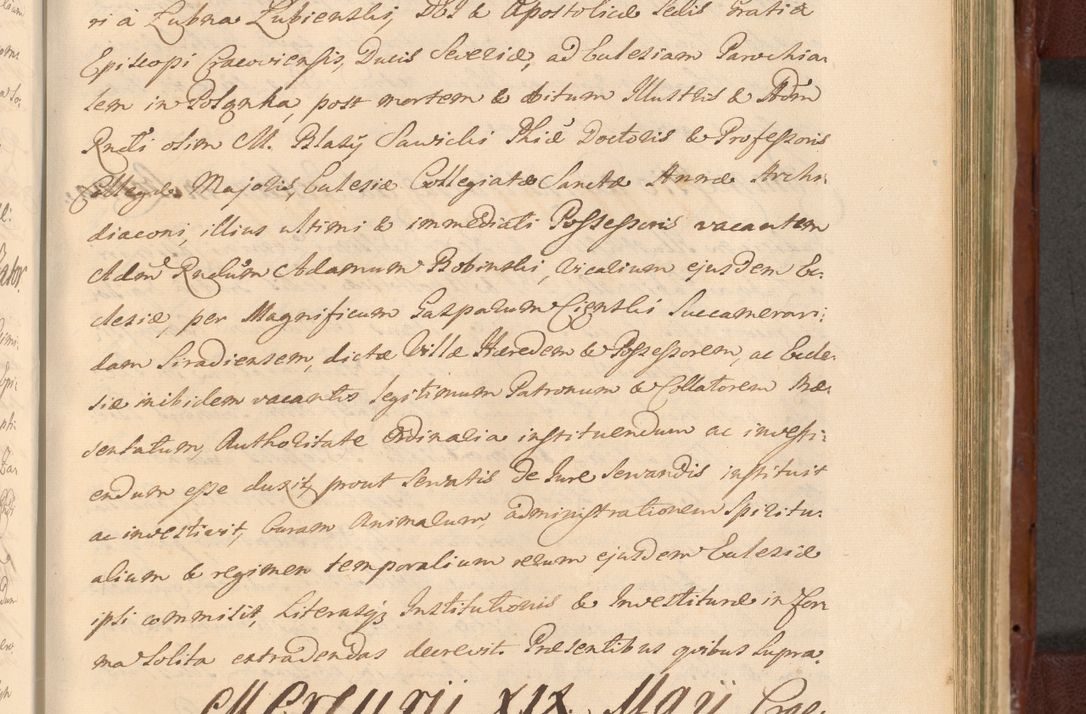 ri à Łubna Łubienskij DEI & Apostolicæ Sedis Gratiæ
Episcopi Cracoviensis, Ducis Severiæ, ad Eulesiam Parochia-
lem in Polanka, post mortem & obitum Illustris & Adm̃
Rndi olim M. Blasij Sawicki Phiæ Doctoris & Professoris
Collegae Majoris, Eulesiæ Collegiatæ Sanctæ Annæ Archi-
diaconi, illius ultimi & immediati Possessoris vacantem
Adm̃ Rndum Adamum Bobinski, Vicarium ejusdem Ec-
clesiæ, per Magnificum Gasparum Cienski Succamerari-
dam Siradiensem, dictæ Villæ Hæredem & Possessorem, ac Eccle-
siæ inibidem vacantis legitimum Patronum & Collatorem Præ-
sentatum, Authoritate Ordinaria instituendum ac investi-
endum esse duxit, prout servatis de Jure servandis instituit
ac investivit, Curam Animarum, administrationem Spiritu-
alium & regimen temporalium rerum ejusdem Eulesiæ
ipsi commisit, Literasq; Institutionis & Investituræ in for-
ma solita extradendas decrevit. Præsentibus quibus supra.
Mercurij XIX Maij Crac.